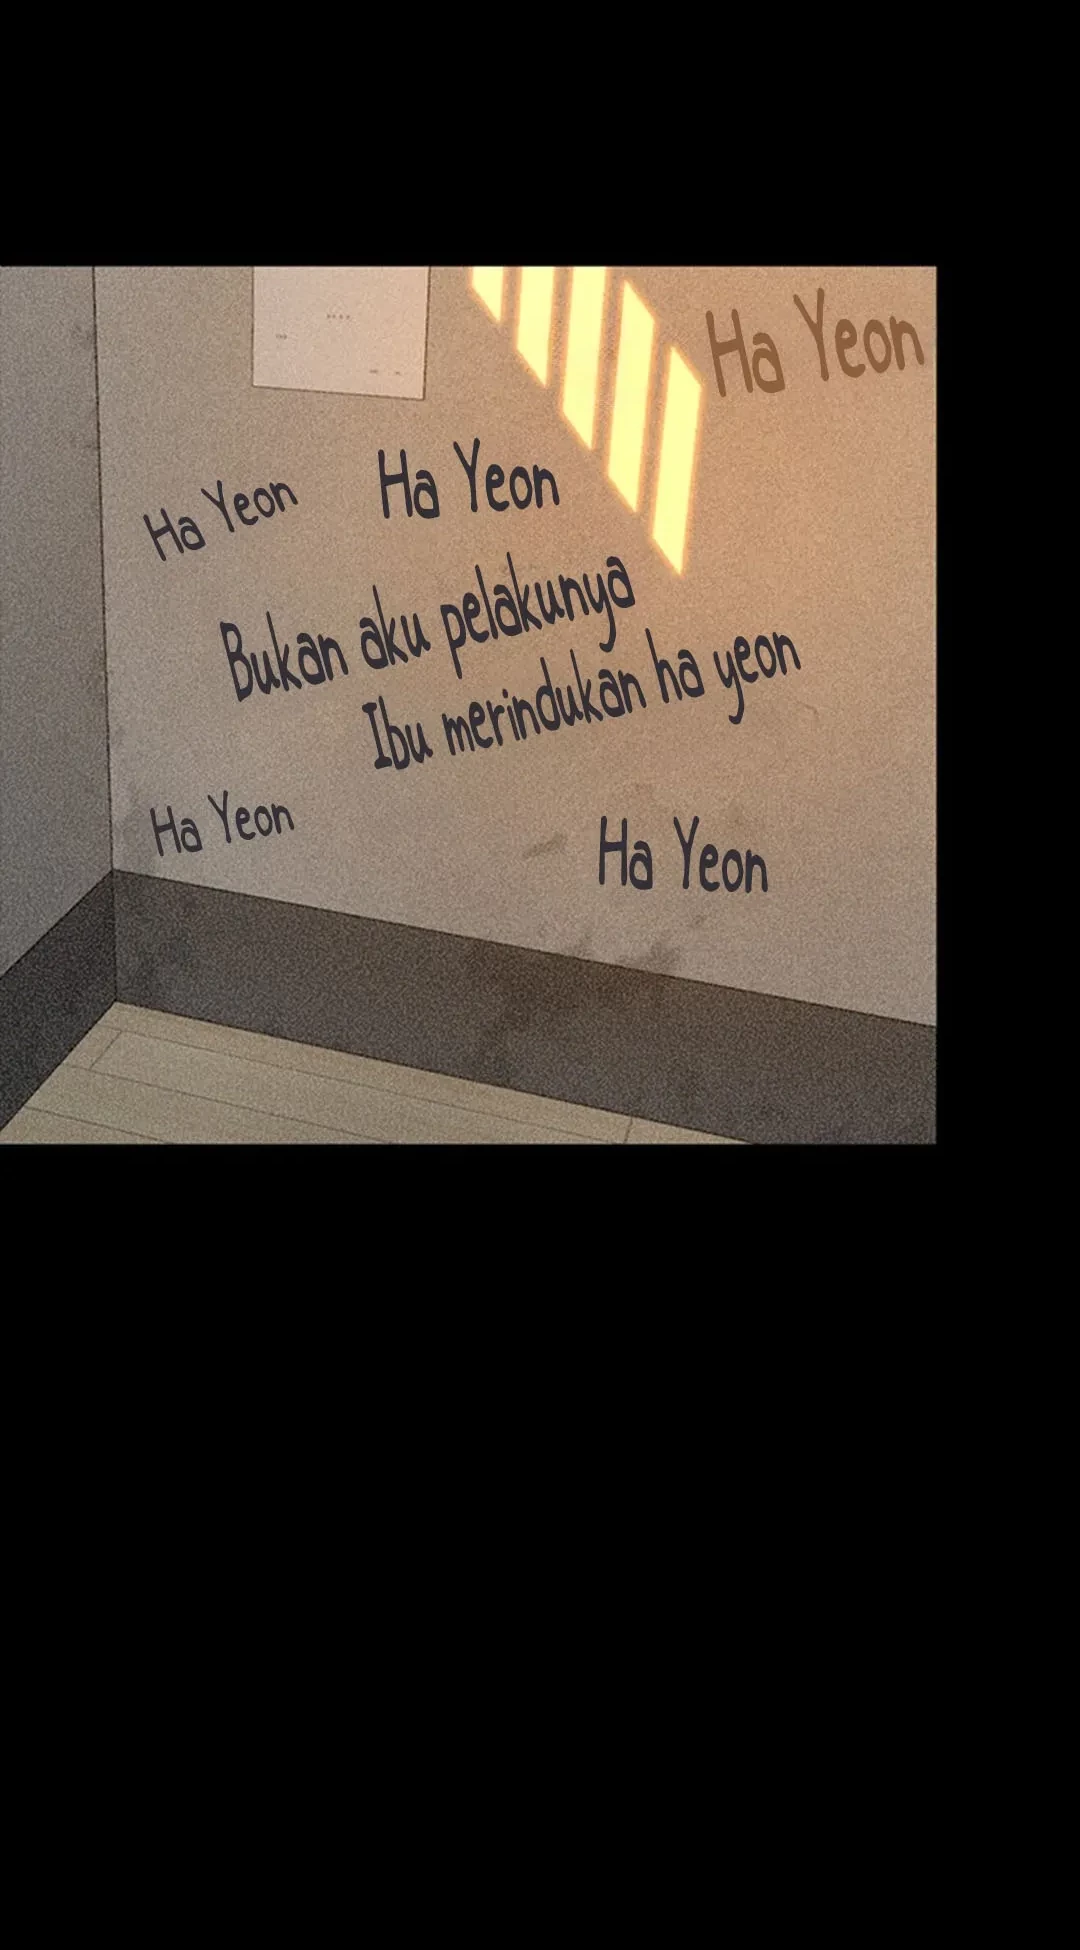 Ha Yeon
Ha Yeon
Ha Yeon
Bukan aku pelakunya
Ibu merindukan ha yeon
Ha Yeon
Ha Yeon